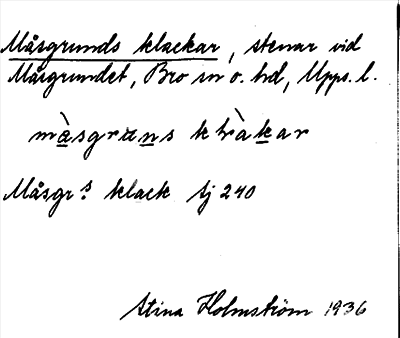 Måsgrunds klackar, stenar vid
Måsgrundet, Bro sn o. hd, Upps. l.
màsgruns klàkar
Måsgr.s klack Sj 240
Stina Holmström 1936